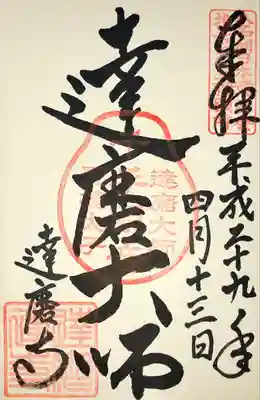 奉拝
平成二十九年
四月十三日
達磨大師
達磨寺
達磨大師